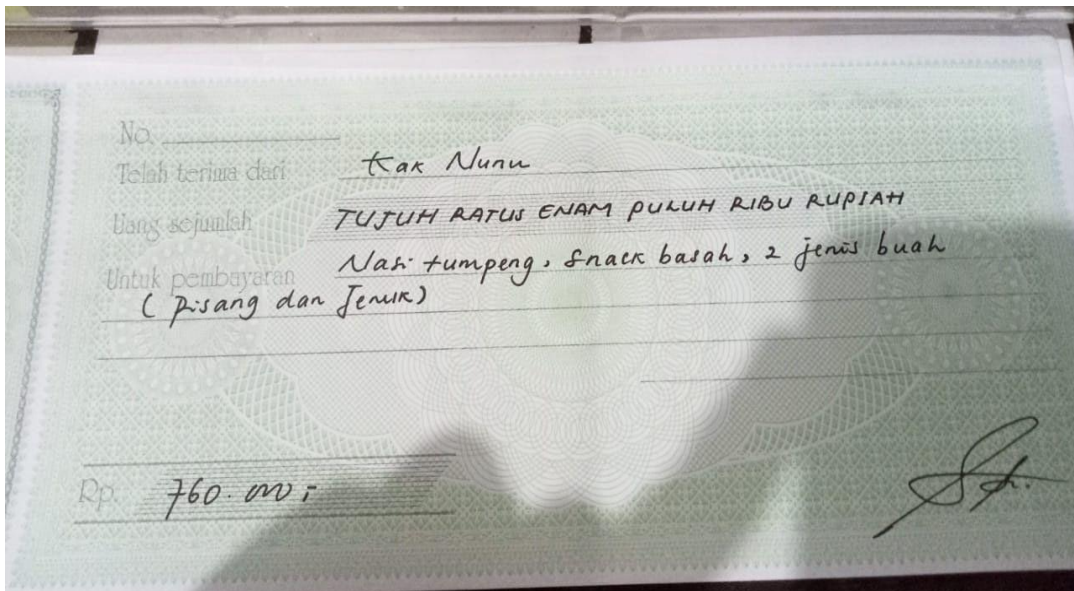 No.
Telah terima dari Kak Nunu
Uang sejumlah TUJUH RATUS ENAM PULUH RIBU RUPIAH
Untuk pembayaran Nasi tumpeng, Snack basah, 2 jenis buah
( Pisang dan Jeruk)
Rp. 760.000,-